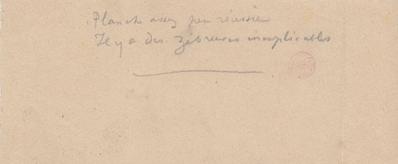 Planche assez peu réussie
Il y a des zébrures inexplicables